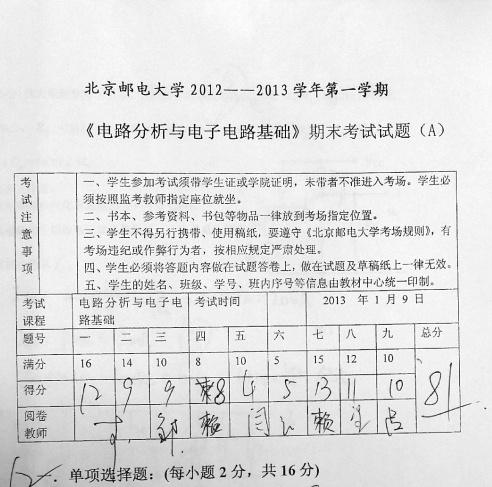 北京邮电大学2012——2013学年第一学期
《电路分析与电子电路基础》期末考试试题（A）
考试注意事项
一、学生参加考试须带学生证或学院证明，未带者不准进入考场。学生必
须按照监考教师指定座位就坐。
二、书本、参考资料、书包等物品一律放到考场指定位置。
三、学生不得另行携带、使用稿纸，要遵守《北京邮电大学考场规则》，有
考场违纪或作弊行为者，按相应规定严肃处理。
四、学生必须将答题内容做在试题答卷上，做在试题及草稿纸上一律无效。
五、学生的姓名、班级、学号、班内序号等信息由教材中心统一印制。
考试课程 电路分析与电子电路基础 考试时间 2013 年 1 月 9 日
题号 一 二 三 四 五 六 七 八 九 总分
满分 16 14 10 8 10 5 15 12 10
得分 12 9 9 8 4 5 13 11 10 81
阅卷教师 赖 闫 赖
一. 单项选择题：(每小题 2 分，共 16 分)